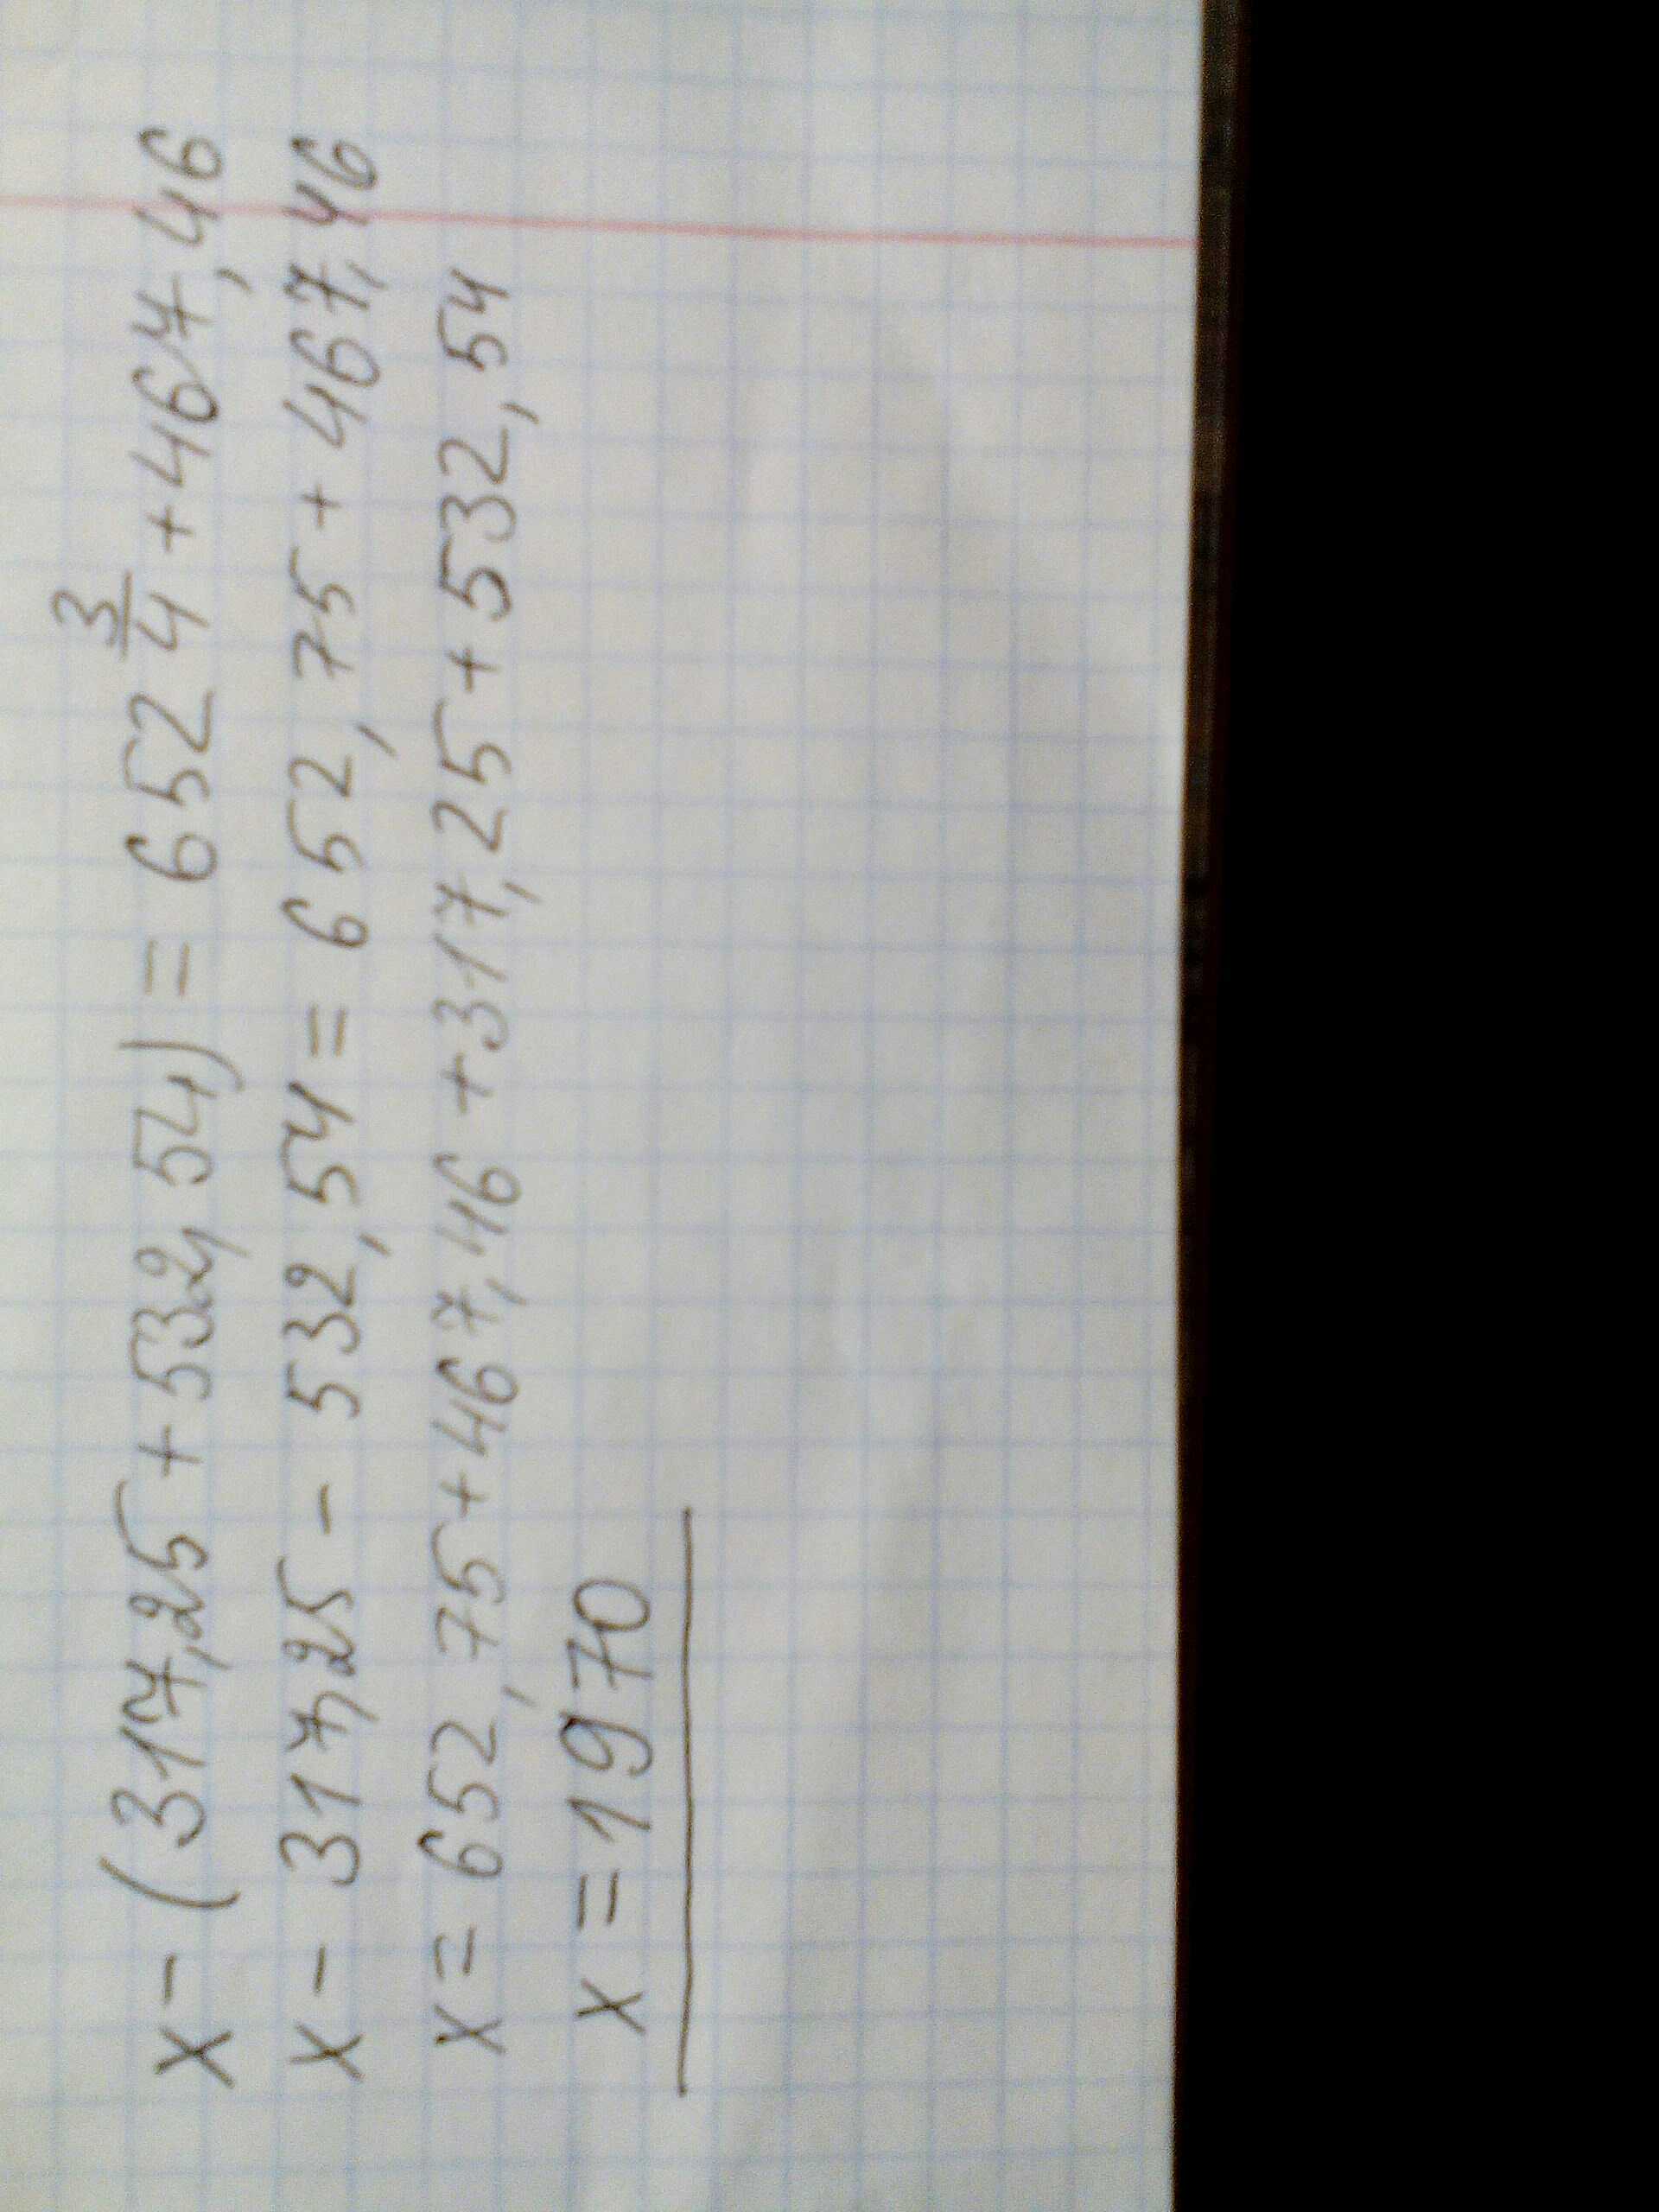 x - (317,25 + 532,54) = 652 3/4 + 467,46
x - 317,25 - 532,54 = 652,75 + 467,46
x = 652,75 + 467,46 + 317,25 + 532,54
x = 1970